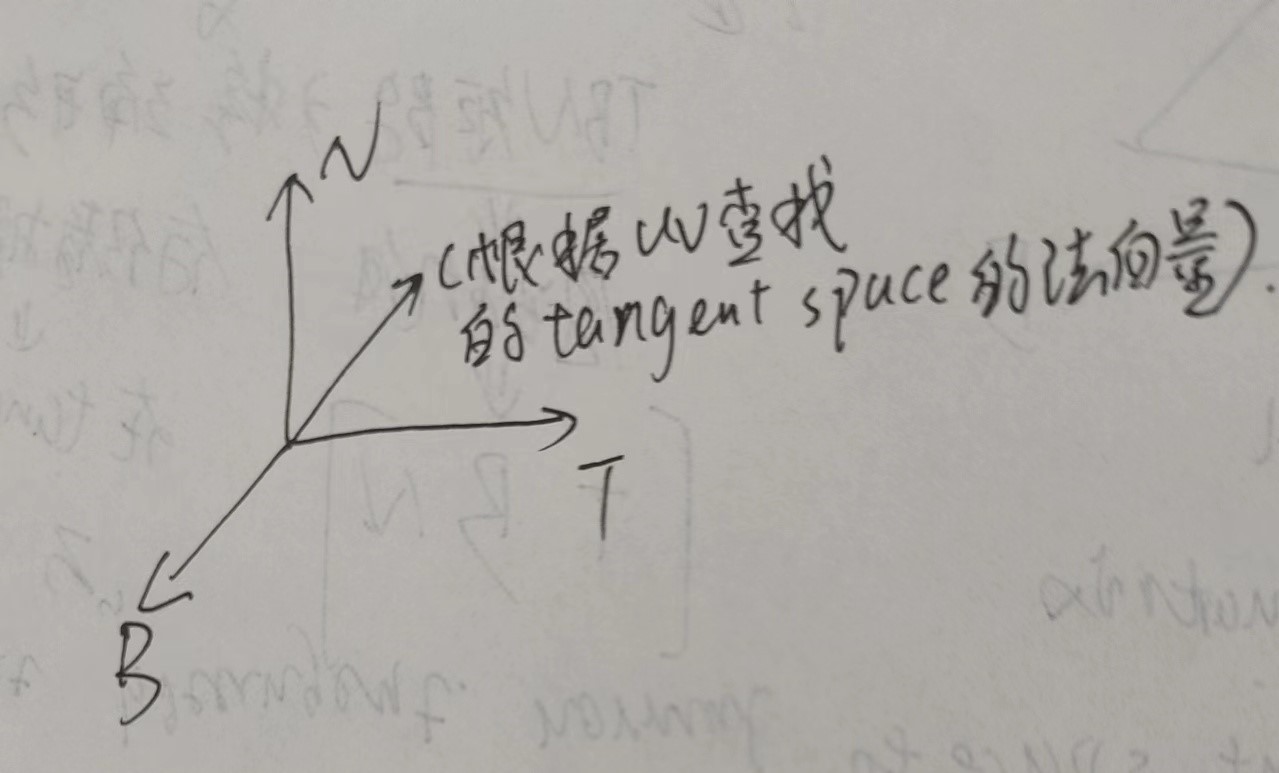 N
(根据 UV 查找
的 tangent space 的法向量).
T
B